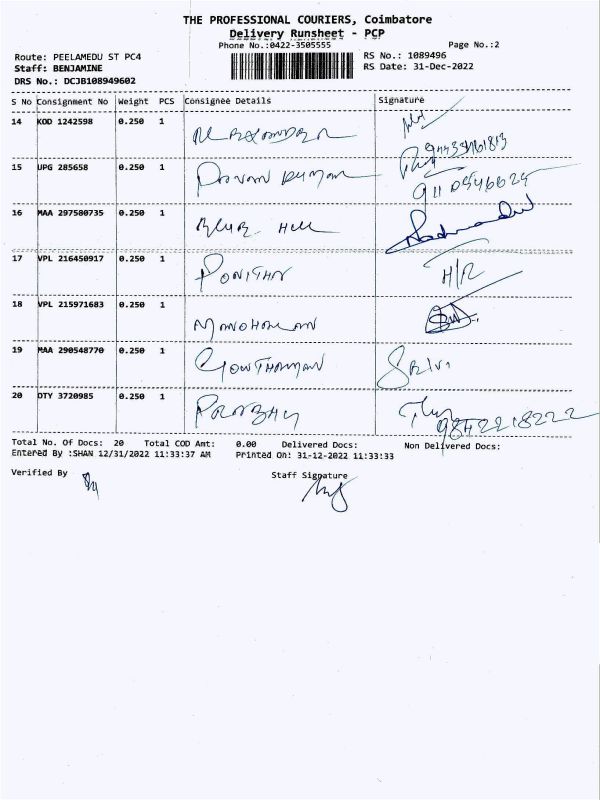 THE PROFESSIONAL COURIERS, Coimbatore
Delivery Runsheet - PCP
Phone No.:0422-3505555 Page No.:2
Route: PEELAMEDU ST PC4 RS No.: 1089496
Staff: BENJAMINE RS Date: 31-Dec-2022
DRS No.: DCJB108949602
S No Consignment No Weight PCS Consignee Details Signature
14 KOD 1242598 0.250 1
15 UPG 285658 0.250 1 Pavan Kumar
16 MAA 297580735 0.250 1 Blue Hill
17 VPL 216450917 0.250 1 PONITHA H/R
18 VPL 215971683 0.250 1 MANOHARAN
19 MAA 290548770 0.250 1 GOWTHAMAN
20 DTY 3720985 0.250 1 PRABHU 9842218222
Total No. Of Docs: 20 Total COD Amt: 0.00 Delivered Docs: Non Delivered Docs:
Entered By :SHAN 12/31/2022 11:33:37 AM Printed On: 31-12-2022 11:33:33
Verified By Staff Signature